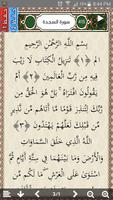 8:44 PM
سورة السجدة
بِسْمِ اللَّهِ الرَّحْمَٰنِ الرَّحِيمِ
الم ﴿١﴾ تَنزِيلُ الْكِتَابِ لَا
رَيْبَ فِيهِ مِن رَّبِّ الْعَالَمِينَ ﴿٢﴾ أَمْ
يَقُولُونَ افْتَرَاهُ ۚ بَلْ هُوَ الْحَقُّ مِن
رَّبِّكَ لِتُنذِرَ قَوْمًا مَّا أَتَاهُم مِّن
نَّذِيرٍ مِّن قَبْلِكَ لَعَلَّهُمْ يَهْتَدُونَ ﴿٣﴾
اللَّهُ الَّذِي خَلَقَ السَّمَاوَاتِ
وَالْأَرْضَ وَمَا بَيْنَهُمَا فِي سِتَّةِ أَيَّامٍ
3/1